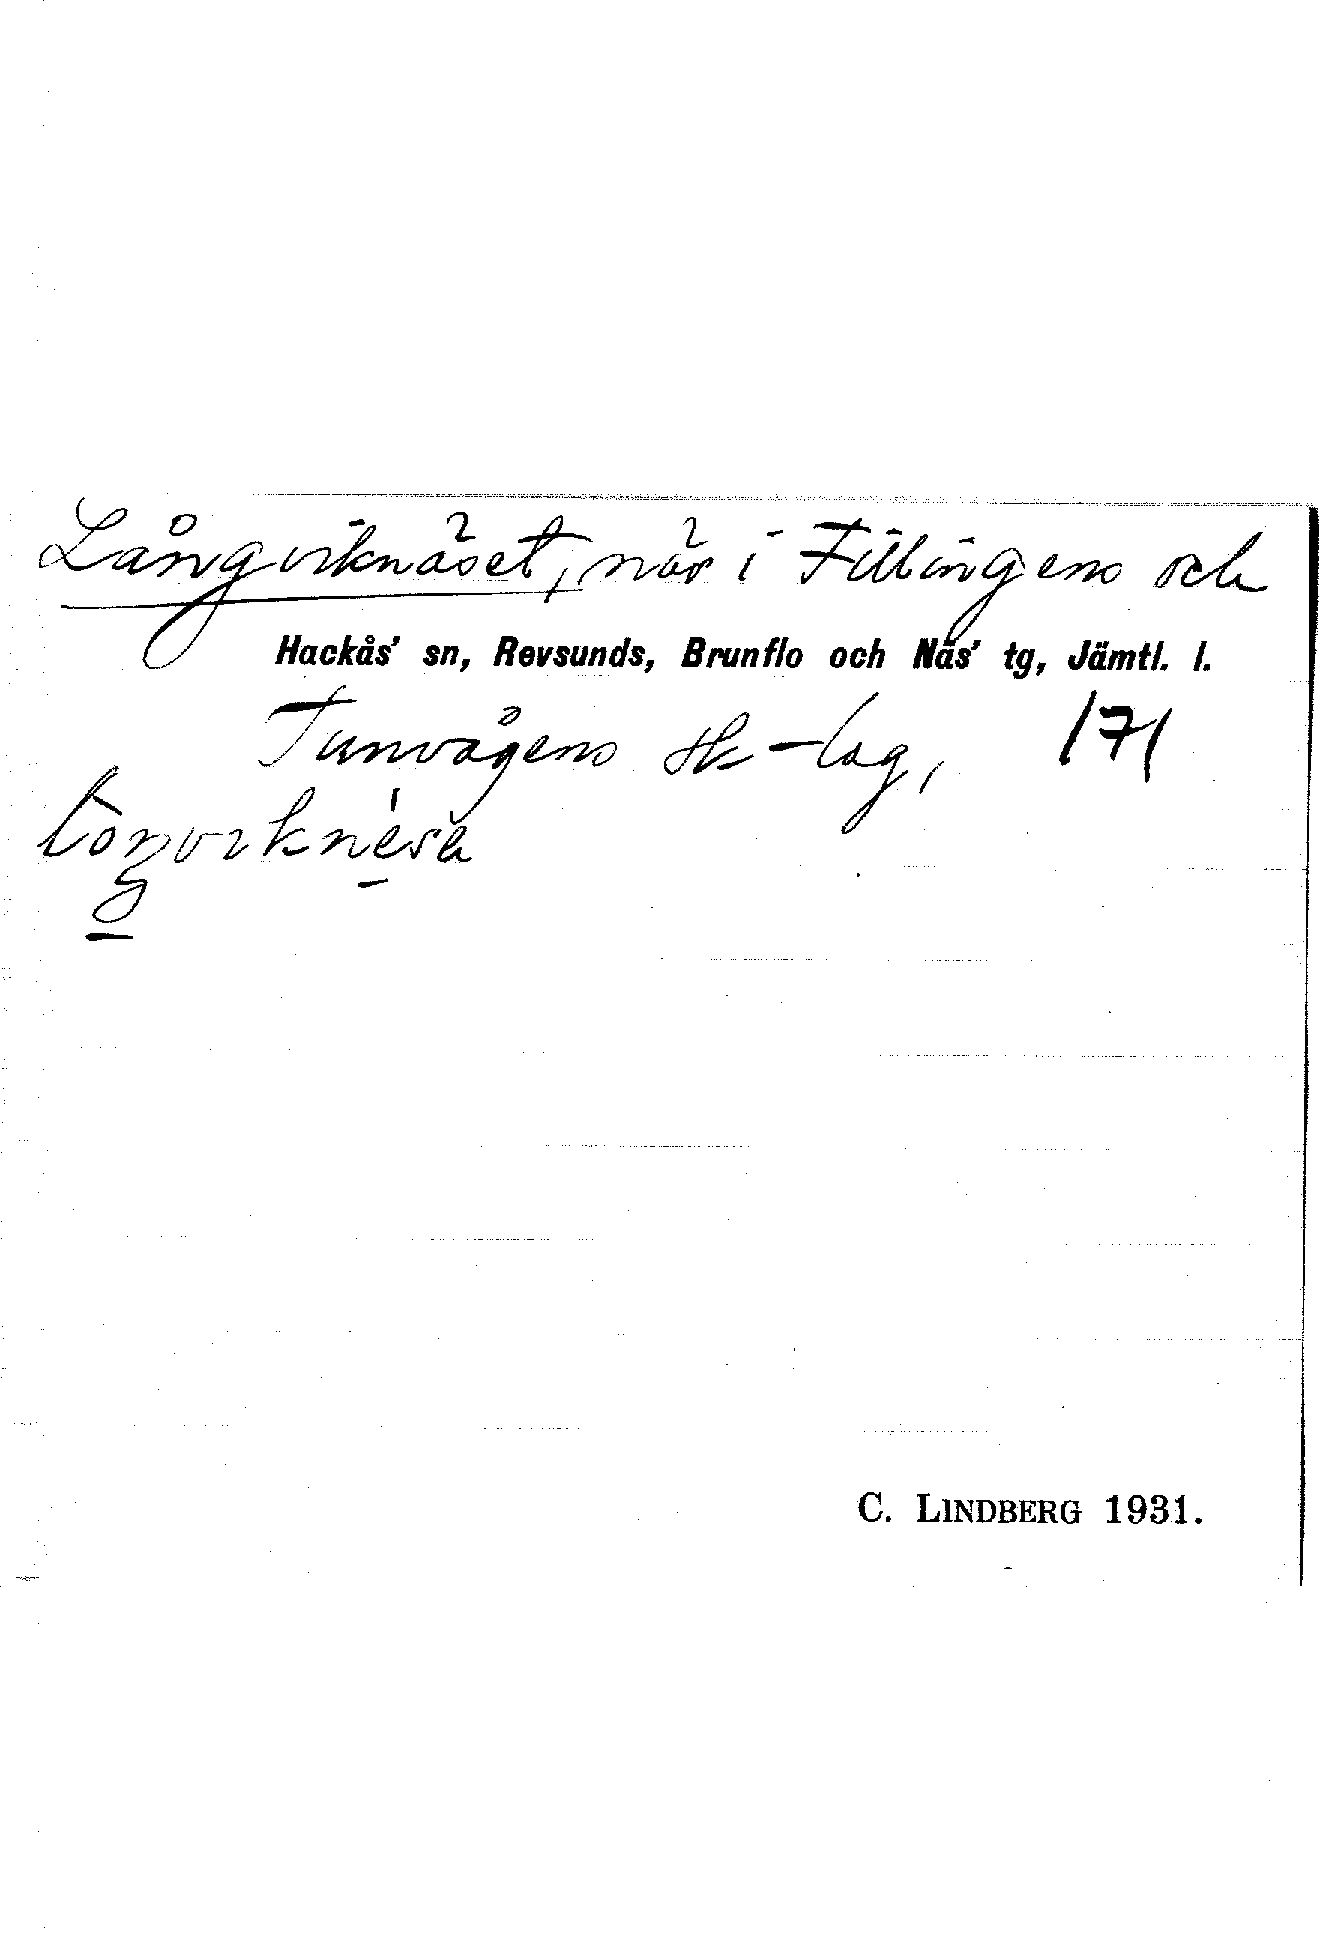 Långviknäset, när i Fillingens och
Hackås' sn, Revsunds, Brunflo och Näs' tg, Jämtl. l.
Tunvågens sk-lag, 171
C. LINDBERG 1931.